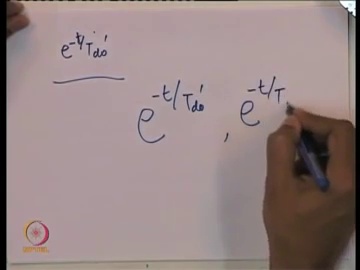 e^{-t/T_{do}'}
e^{-t/T_{do}'} , e^{-t/T}
NPTEL